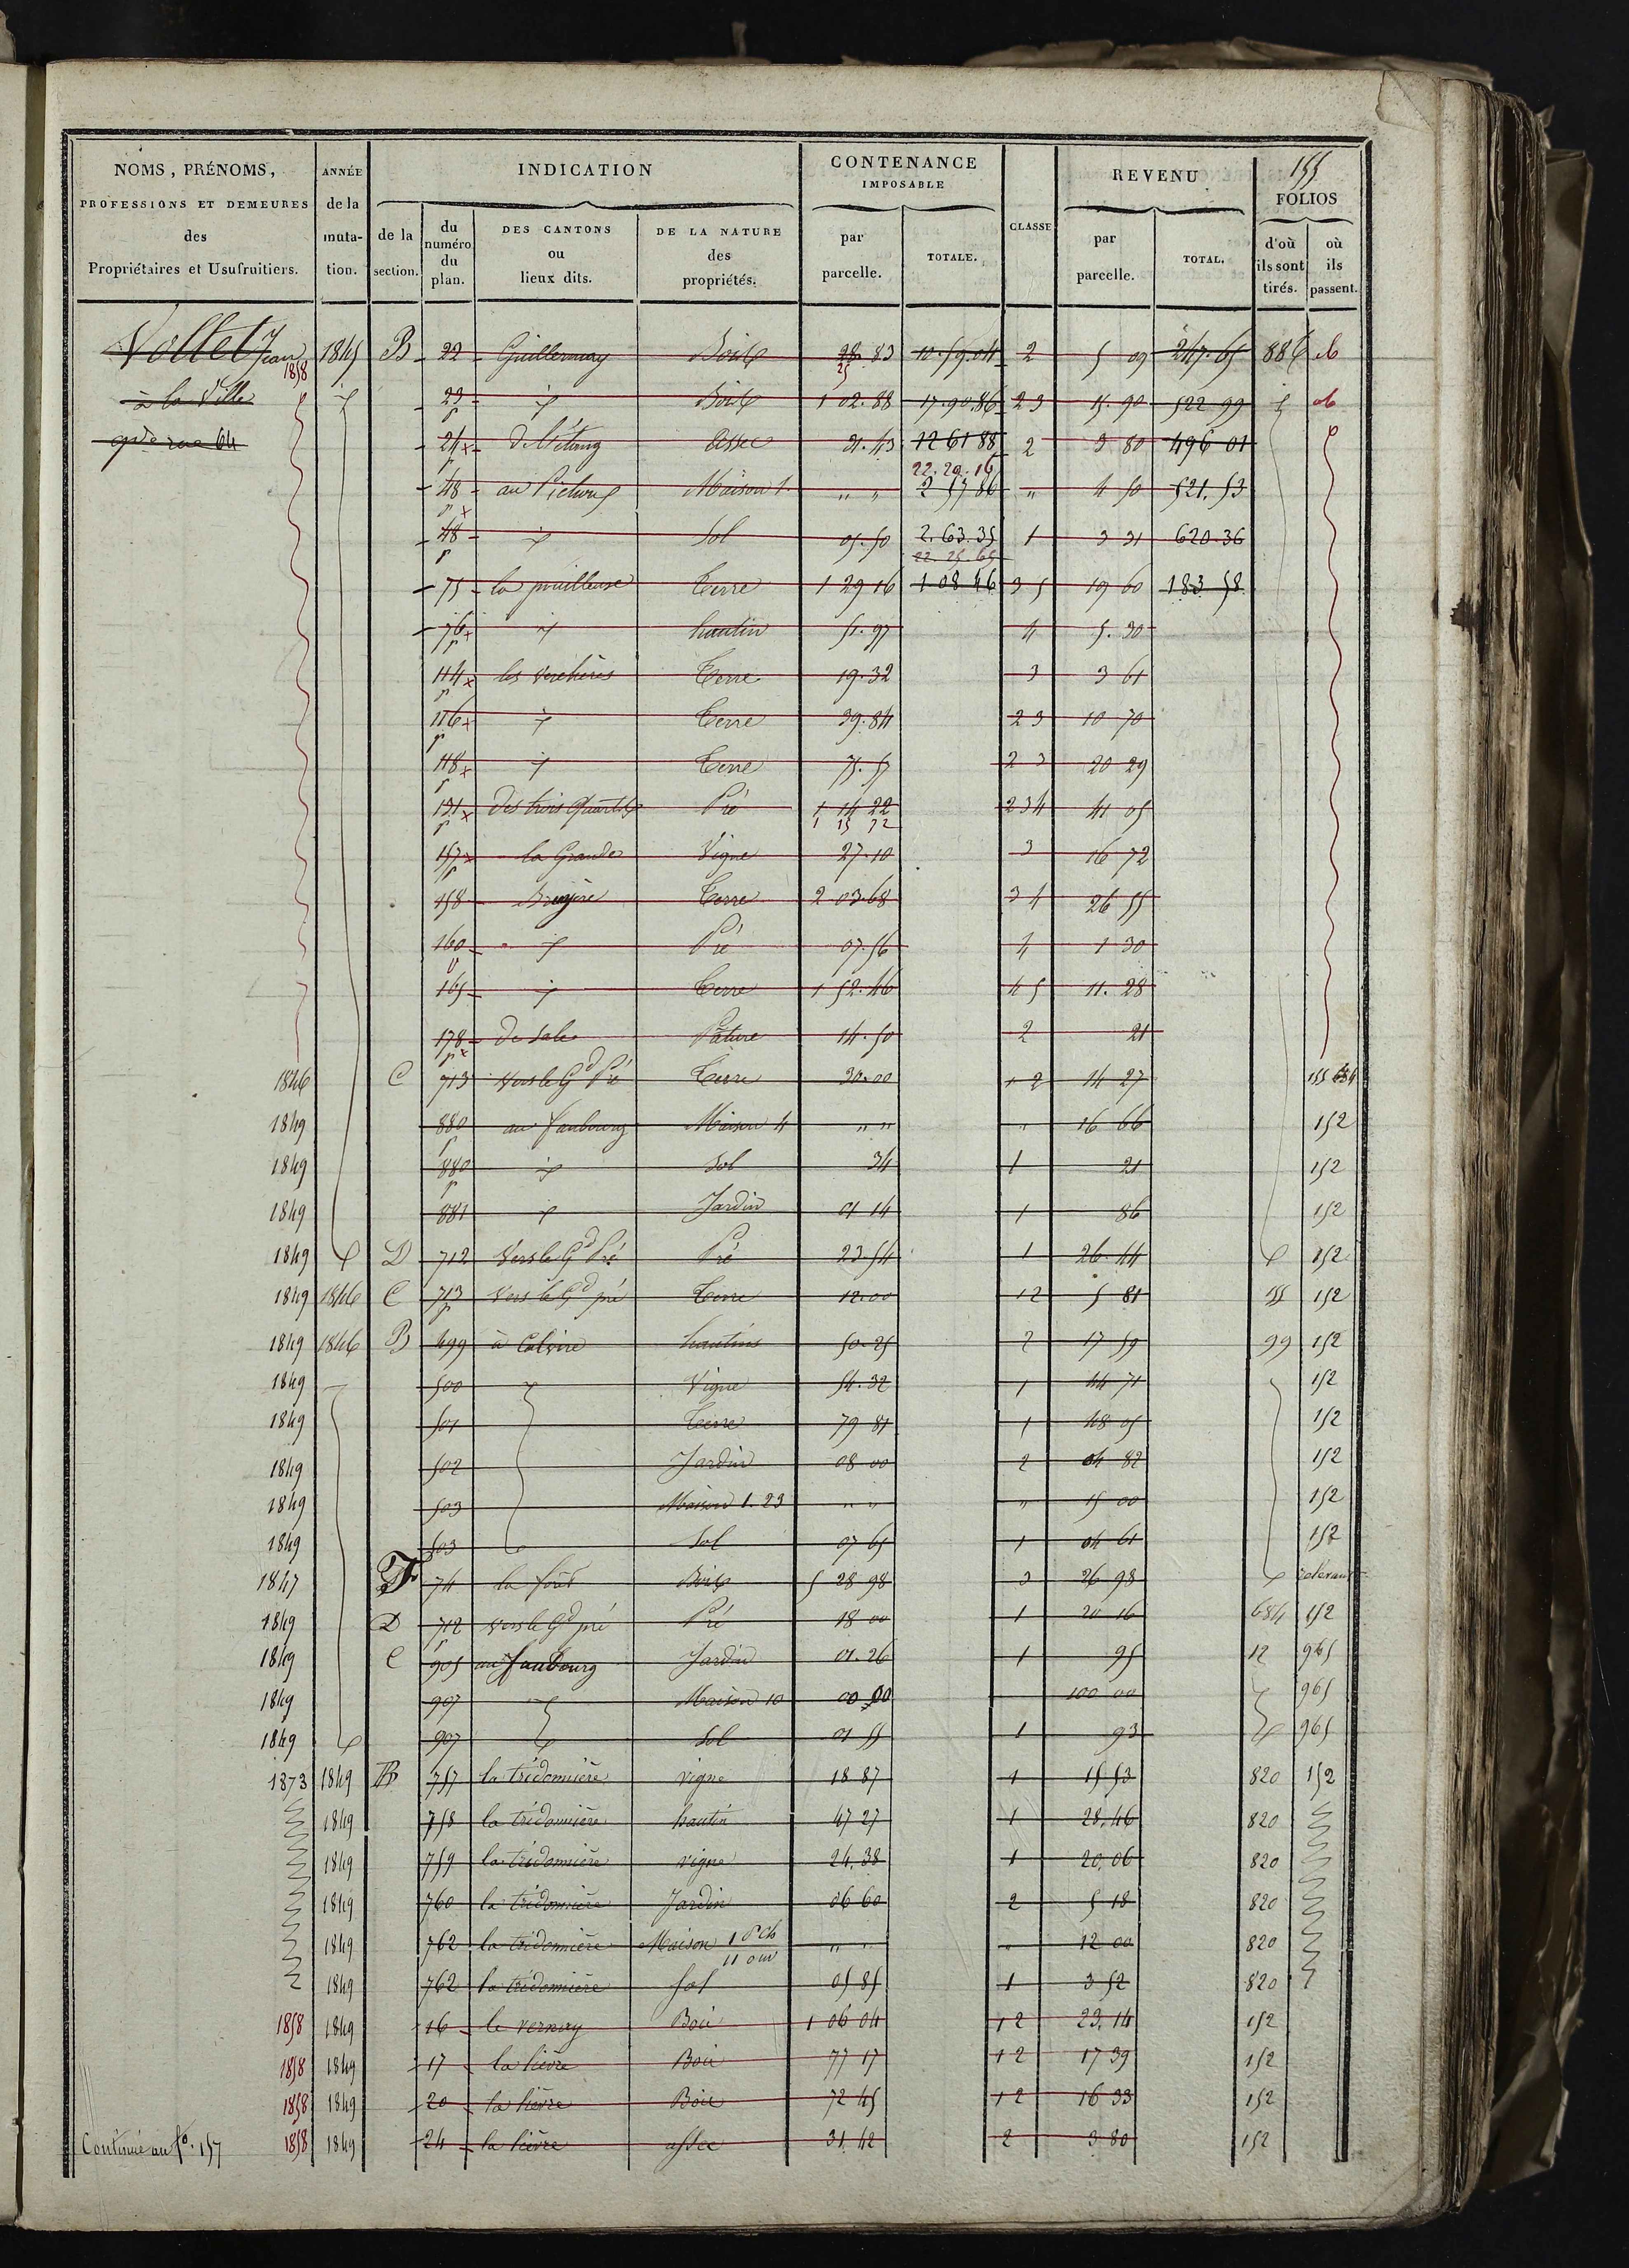 155
NOMS, PRÉNOMS, PROFESSIONS ET DEMEURES des Propriétaires et Usufruitiers.
ANNÉE de la muta- tion.
INDICATION
de la section.
du numéro du plan.
DES CANTONS ou lieux dits.
DE LA NATURE des propriétés.
CONTENANCE IMPOSABLE
par parcelle.
TOTALE.
CLASSE
REVENU
par parcelle.
TOTAL.
FOLIOS
d'où ils sont tirés.
où ils passent.
Vollet Jean 1858 1845 B 22 Guillermay Bois 28.83 25 10.59.04 2 5 09 247.65 886
à la Ville 23 Bois 1 02.88 17.90.86 23 15.90 522 99
rue 64 24 De l'étang assec 21.43 12 61 88 2 3 80 496 01
48 Maison 1. " " 22.20.16 2 57 86 " 4 50 521.53
48 Sol 05.50 2.63.35 22.25.65 1 3 31 620.36
75 Terre 1 29 16 1 08 46 3 5 19 60 183 58
76 hautin 51.97 4 5.30
114 les verchères Terre 19.32 3 3 61
116 Terre 39.84 23 10 70
118 Terre 23 20 29
131 Des trois quarts Pré 1 14 22 1 15 72 234 41 05
157 la Grande Vigne 27.10 3 16 72
158 Bruyère Terre 2 03.68 34 26 55
160 Pré 07.56 4 1 30
165 Terre 1 52.46 45 11.28
178 De Sale Pâture 14.50 2 21
1846 C 713 Vers le Gd Pré Terre 30.00 12 14 27 155 684
1849 880 au faubourg Maison 4 " " " 16 66 152
1849 880 Sol 34 1 21 152
1849 881 Jardin 01 14 1 86 152
1849 D 712 Vers le Gd Pré Pré 23.54 1 26.44 152
1849 1846 C 713 Vers le Gd pré Terre 12.00 12 5 81 155 152
1849 1846 B 499 à Calvire hautins 50.25 2 17 59 99 152
1849 500 Vigne 54.32 1 44 71 152
1849 501 Terre 79 81 1 48 05 152
1849 502 Jardin 08 00 2 04 82 152
1849 503 Maison 1.23 " " " 15 00 152
1849 503 Sol 07 65 1 04 61 152
1847 F 74 la forêt Bois 5 28 98 3 26 98
1849 D 712 vers le Gd pré Pré 18 00 1 20 16 684 152
1849 C 905 au faubourg Jardin 01.26 1 95 12 965
1849 907 Maison 10 00 00 100 00 965
1849 907 Sol 01 55 1 93 965
1873 1849 B 757 la trédomière vigne 18 87 1 15 53 820 152
1849 758 la trédomière hautin 47 27 1 28.46 820
1849 759 la trédomière vigne 24.38 1 20.06 820
1849 760 la trédomière Jardin 06 60 2 5 18 820
1849 762 la trédomière Maison 1 P Ch 11 ouv " " " 12 00 820
1849 762 la trédomière sol 05 85 1 3 52 820
1858 1849 16 le vernay Bois 1 06 04 12 23.14 152
1858 1849 17 la lièvre Bois 77 17 12 17 39 152
1858 1849 20 la lièvre Bois 72 45 12 16 33 152
1858 1849 24 la lièvre assec 31.42 2 3 80 152
Continué au fo. 157